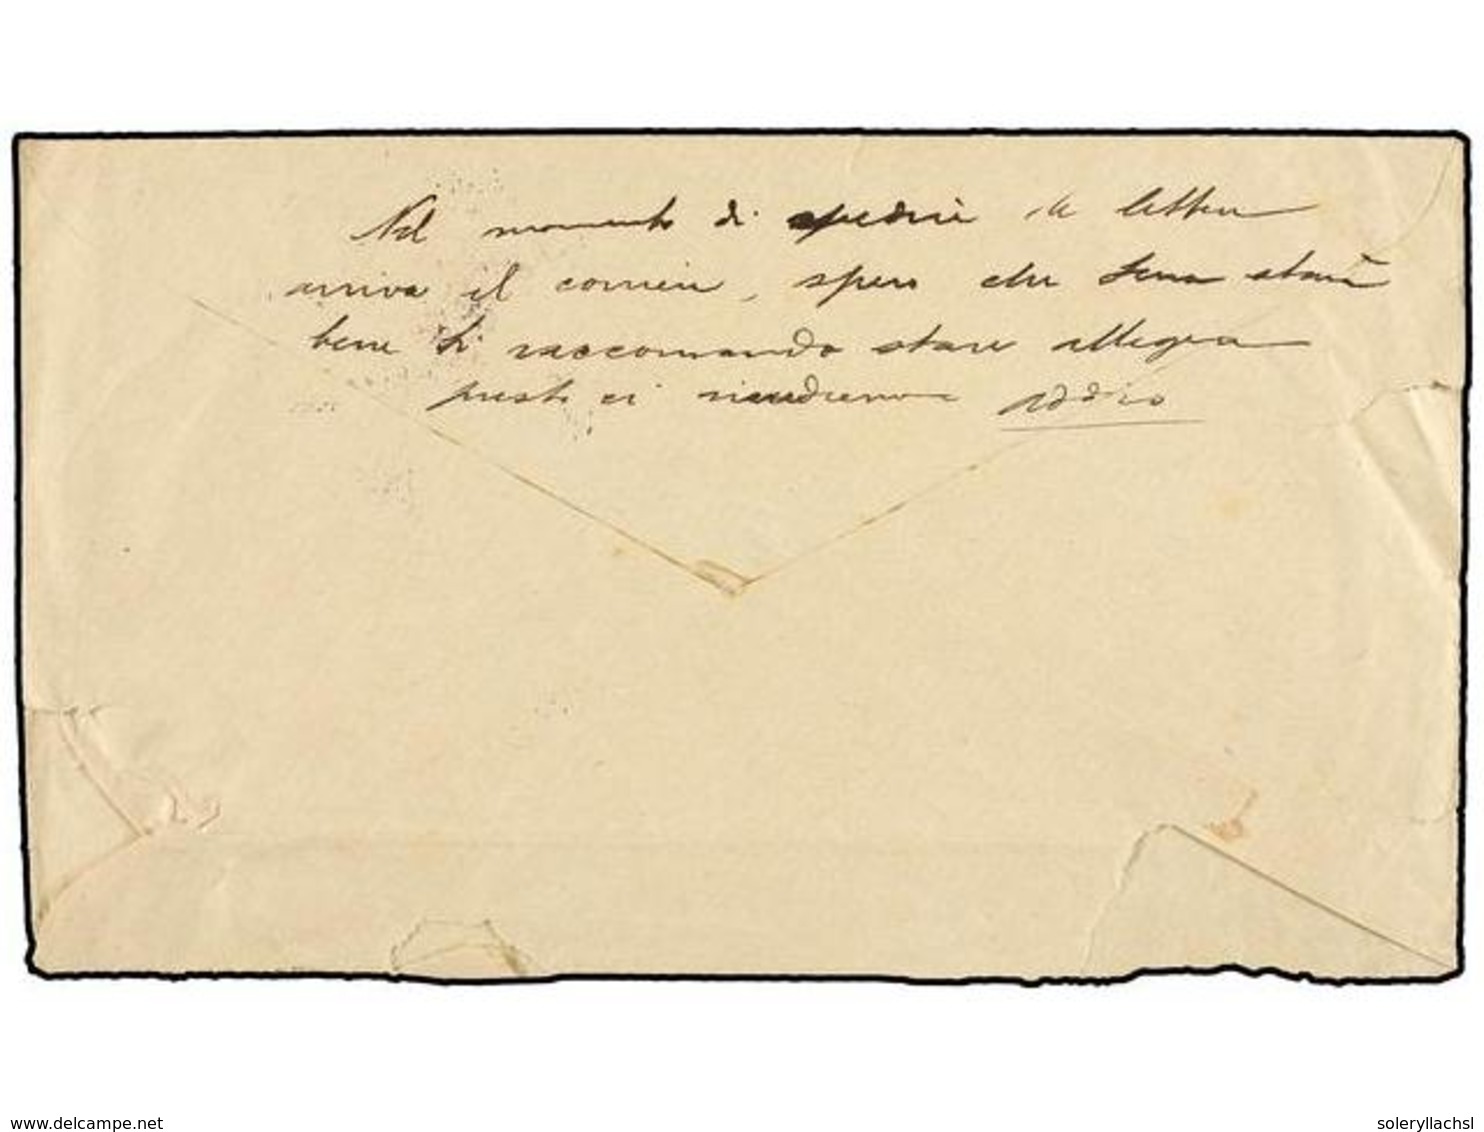 Nel momento di spedire la lettera
arriva il corriere, spero che Lena starà
bene ti raccomando stare allegra
presto ci rivedremo addio
www.delcampe.net
soleryllachsl